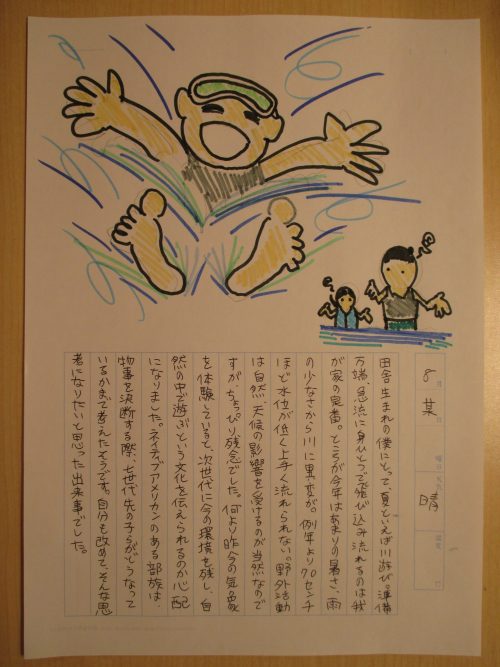 8月某日 曜日 天気 晴 温度 ℃
田舎生まれの僕にとって、夏といえば川遊び。準備
万端、急流に身ひとつで飛び込み流れるのは我
が家の定番。ところが今年はあまりの暑さ、雨
の少なさから川に異変が。例年より70センチ
ほど水位が低く上手く流れられない。野外活動
は自然、天候の影響を受けるのが当然なので
すが、ちょっぴり残念でした。何より昨今の気象
を体験していると、次世代に今の環境を残し、自
然の中で遊ぶという文化を伝えられるのか心配
になりました。ネイティブアメリカンのある部族は、
物事を決断する際、七世代先の子らがどうなって
いるかまで考えたそうです。自分も改めて、そんな思
考になりたいと思った出来事でした。